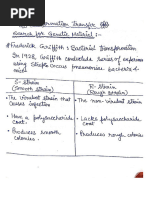 Information Transfer
Search for Genetic Material :-
Frederick Griffith : Bacterial Transformation
In 1928, Griffith conducted series of experiment
using Streptococcus pneumoniae bacteria
S-Strain
(Smooth strain)
• The virulent strain that causes infection
• Have a polysaccharide coat.
• Produces smooth colonies.
R-Strain
(Rough strain)
• The non-virulent strain
• Lacks polysaccharide coat.
• Produces rough colonies.